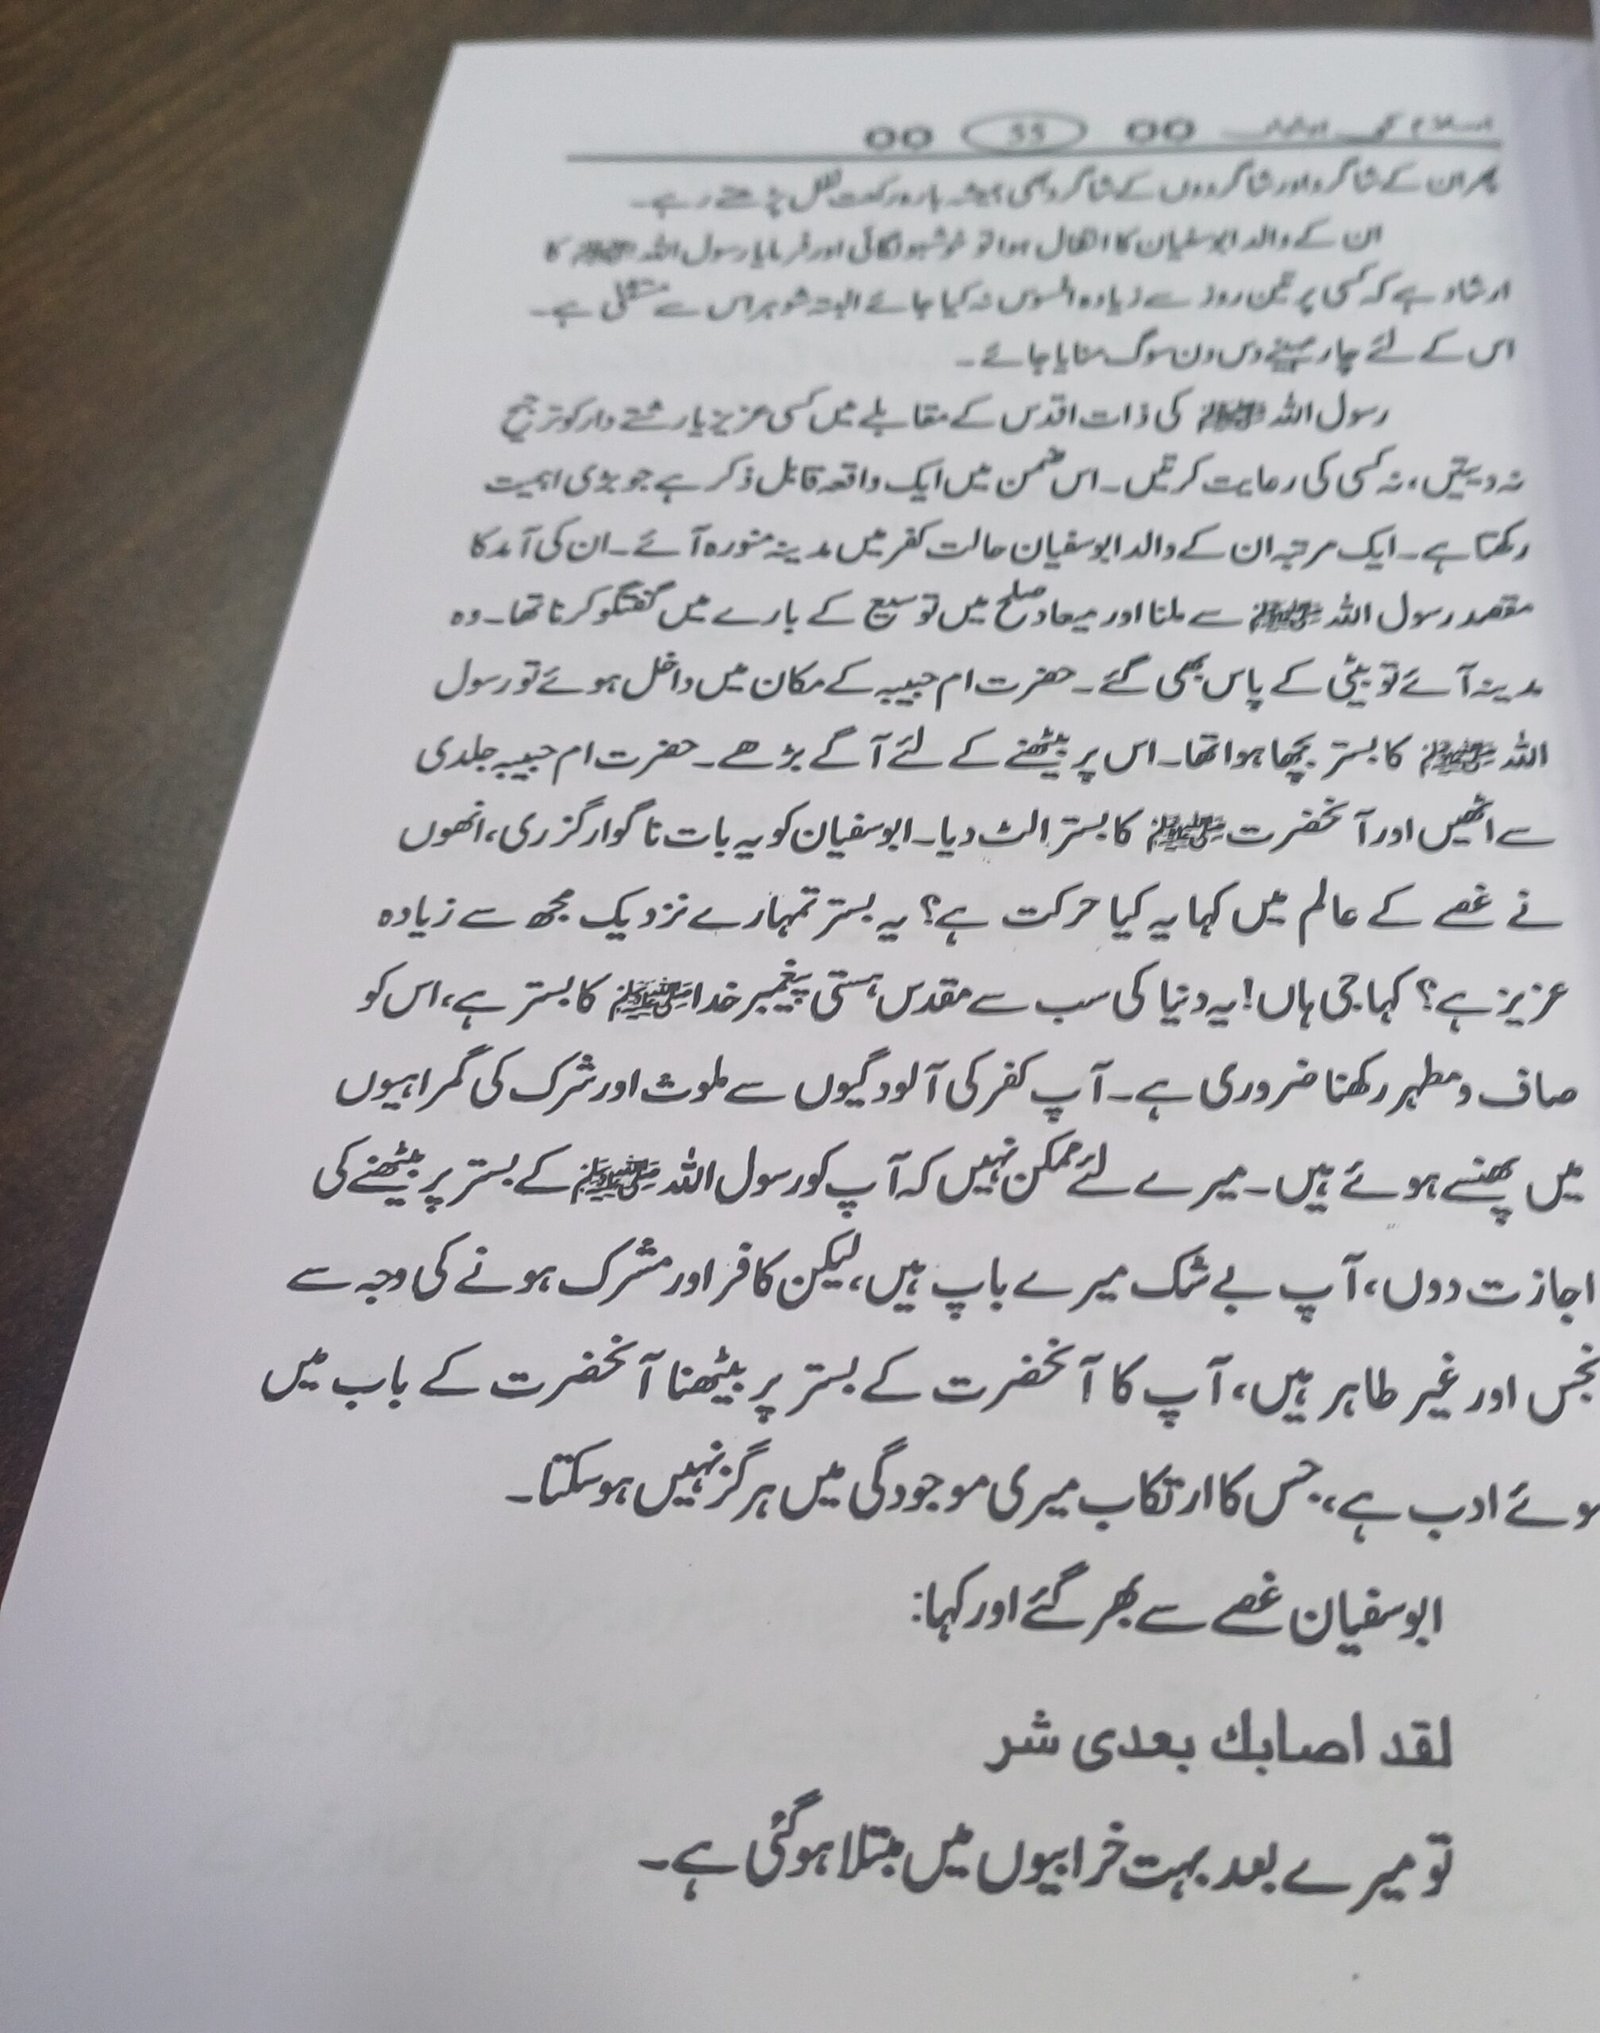 55
پھر ان کے شاگرد اور شاگردوں کے شاگرد بھی ہمیشہ بارہ رکعت نفل پڑھتے رہے۔
ان کے والد ابوسفیان کا انتقال ہوا تو خوشبو لگائی اور فرمایا رسول اللہ ﷺ کا
ارشاد ہے کہ کسی پر تین روز سے زیادہ افسوس نہ کیا جائے البتہ شوہر اس سے مستثنیٰ ہے۔
اس کے لئے چار مہینے دس دن سوگ منایا جائے۔
رسول اللہ ﷺ کی ذات اقدس کے مقابلے میں کسی عزیز یا رشتے دار کو ترجیح
نہ دیتیں، نہ کسی کی رعایت کرتیں۔ اس ضمن میں ایک واقعہ قابل ذکر ہے جو بڑی اہمیت
رکھتا ہے۔ ایک مرتبہ ان کے والد ابوسفیان حالت کفر میں مدینہ منورہ آئے۔ ان کی آمد کا
مقصد رسول اللہ ﷺ سے ملنا اور میعاد صلح میں توسیع کے بارے میں گفتگو کرنا تھا۔ وہ
مدینہ آئے تو بیٹی کے پاس بھی گئے۔ حضرت ام حبیبہ کے مکان میں داخل ہوئے تو رسول
اللہ ﷺ کا بستر بچھا ہوا تھا۔ اس پر بیٹھنے کے لئے آگے بڑھے۔ حضرت ام حبیبہ جلدی
سے اٹھیں اور آنحضرت ﷺ کا بستر الٹ دیا۔ ابوسفیان کو یہ بات ناگوار گزری، انھوں
نے غصے کے عالم میں کہا یہ کیا حرکت ہے؟ یہ بستر تمہارے نزدیک مجھ سے زیادہ
عزیز ہے؟ کہا جی ہاں! یہ دنیا کی سب سے مقدس ہستی پیغمبر خدا ﷺ کا بستر ہے، اس کو
صاف و مطہر رکھنا ضروری ہے۔ آپ کفر کی آلودگیوں سے ملوث اور شرک کی گمراہیوں
میں پھنسے ہوئے ہیں۔ میرے لئے ممکن نہیں کہ آپ کو رسول اللہ ﷺ کے بستر پر بیٹھنے کی
اجازت دوں، آپ بے شک میرے باپ ہیں، لیکن کافر اور مشرک ہونے کی وجہ سے
نجس اور غیر طاہر ہیں، آپ کا آنحضرت کے بستر پر بیٹھنا آنحضرت کے باب میں
سوئے ادب ہے، جس کا ارتکاب میری موجودگی میں ہرگز نہیں ہوسکتا۔
ابوسفیان غصے سے بھر گئے اور کہا:
لقد اصابك بعدی شر
تو میرے بعد بہت خرابیوں میں مبتلا ہوگئی ہے۔